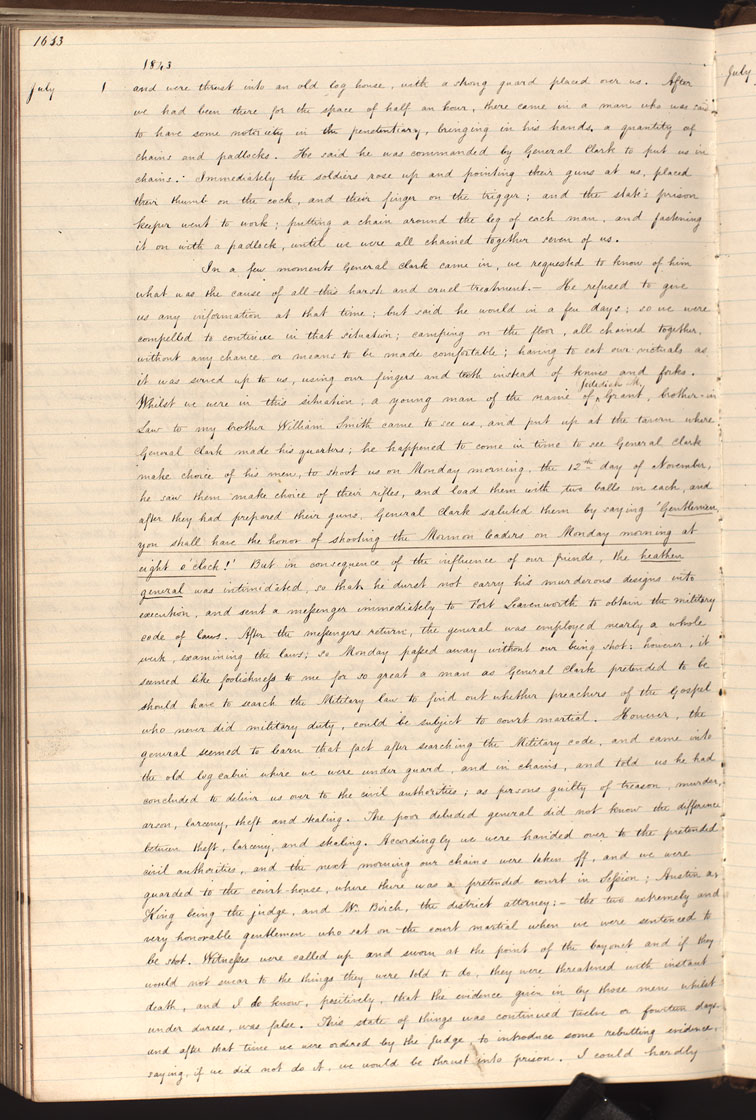 1653
1843
July 1 and were thrust into an old log house, with a strong guard placed over us. After
we had been there for the space of half an hour, there came in a man who was said
to have some notoriety in the penitentiary, bringing in his hands a quantity of
chains and padlocks. He said he was commanded by General Clark to put us in
chains. Immediately the soldiers rose up and pointing their guns at us, placed
their thumb on the cock, and their finger on the trigger; and the state's prison
keeper went to work; putting a chain around the leg of each man, and fastening
it on with a padlock, until we were all chained together seven of us.
In a few moments General Clark came in, we requested to know of him
what was the cause of all this harsh and cruel treatment.— He refused to give
us any information at that time; but said he would in a few days; so we were
compelled to continue in that situation; camping on the floor, all chained together,
without any chance or means to be made comfortable; having to eat our victuals as
it was served up to us, using our fingers and teeth instead of knives and forks.
Whilst we were in this situation, a young man of the name of Jedediah M. Grant, brother-in
Law to my brother William Smith came to see us, and put up at the tavern where
General Clark made his quarters; he happened to come in time to see General Clark
make choice of his men, to shoot us on Monday morning, the 12th day of November,
he saw them make choice of their rifles, and load them with two balls in each, and
after they had prepared their guns, General Clark saluted them by saying 'Gentlemen,
you shall have the honor of shooting the Mormon leaders on Monday morning at
eight o'clock!' But in consequence of the influence of our friends, the heathen
general was intimidated, so that he durst not carry his murderous designs into
execution, and sent a messenger immediately to Fort Leavenworth to obtain the military
code of laws. After the messengers return, the general was employed nearly a whole
week, examining the laws; so Monday passed away without our being shot: however, it
seemed like foolishness to me for so great a man as General Clark pretended to be
should have to search the Military law to find out whether preachers of the Gospel
who never did military duty, could be subject to court martial. However, the
general seemed to learn that fact after searching the Military code, and came into
the old log cabin where we were under guard, and in chains, and told us he had
concluded to deliver us over to the civil authorities; as persons guilty of treason, murder,
arson, larceny, theft and stealing. The poor deluded general did not know the difference
between theft, larceny, and stealing. Accordingly we were handed over to the pretended
civil authorities, and the next morning our chains were taken off, and we were
guarded to the court-house, where there was a pretended court in Session; Austin A.
King being the judge, and Mr. Birch, the district attorney;— the two extremely and
very honorable gentlemen who sat on the court martial when we were sentenced to
be shot. Witnesses were called up and sworn at the point of the bayonet and if they
would not swear to the things they were told to do, they were threatened with instant
death, and I do know, positively, that the evidence given in by those men whilst
under duress, was false. This state of things was continued twelve or fourteen days
and after that time we were ordered by the Judge, to introduce some rebutting evidence,
saying, if we did not do it, we would be thrust into prison. I could hardly
July